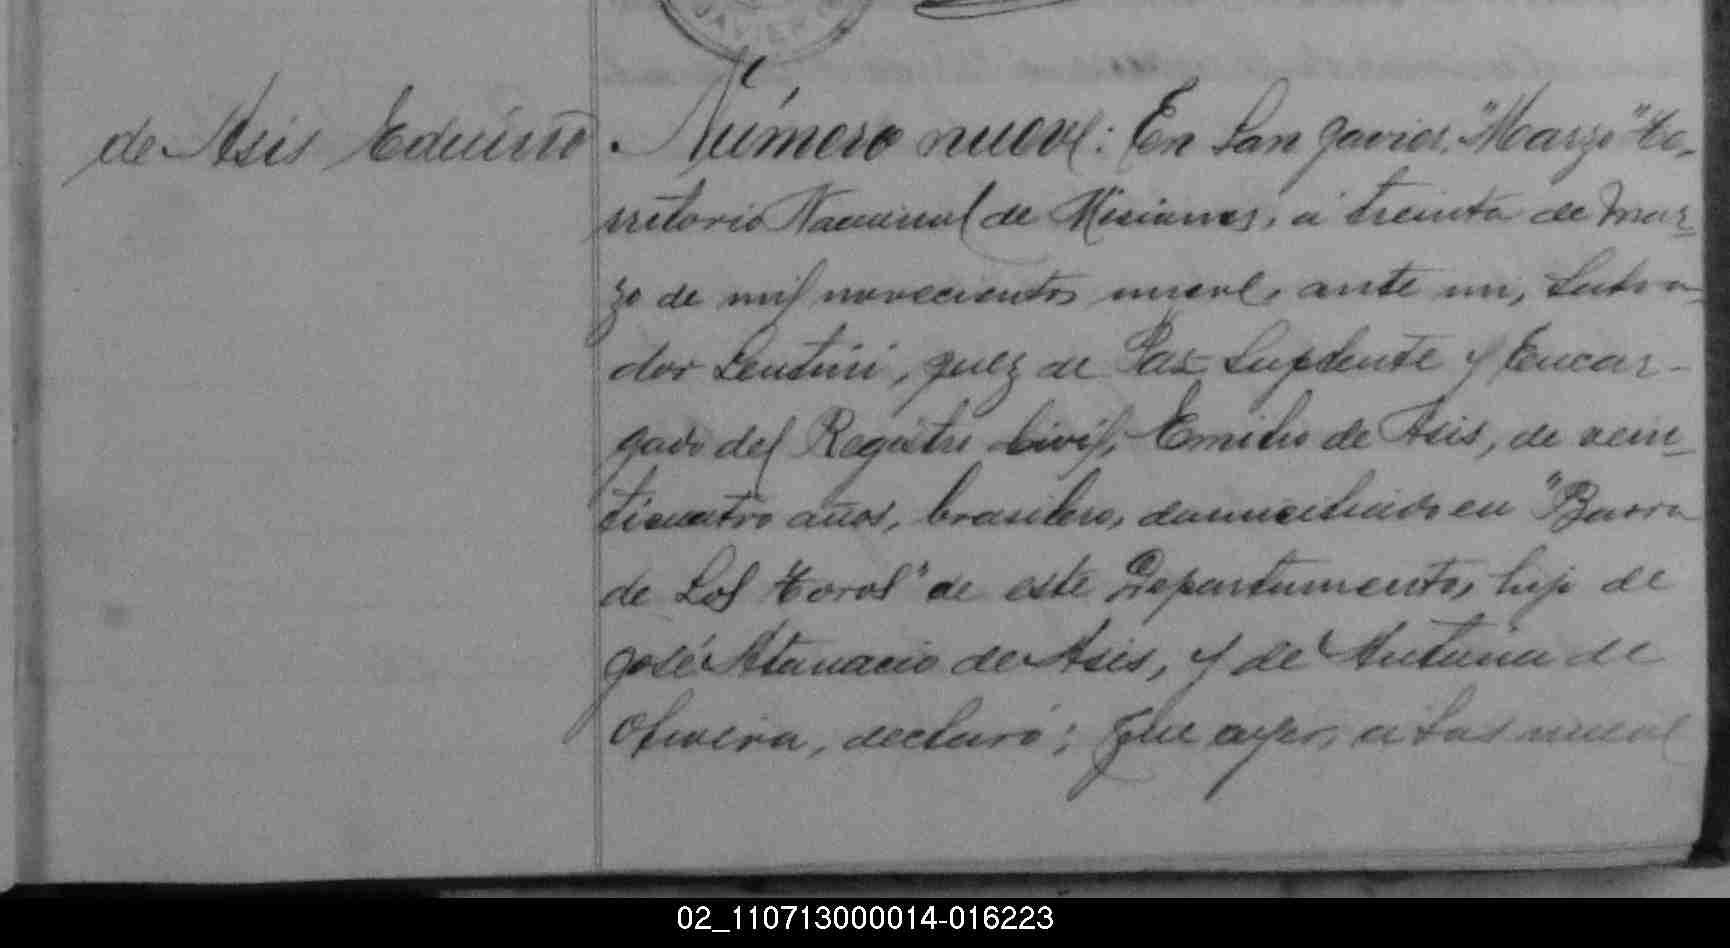 de Asis Eduino
Número nueve: En San Javier, "Marzo" Te-
rritorio Nacional de Misiones, á treinta de mar-
zo de mil novecientos nueve, ante mi, Salva-
dor Lentini, Juez de Paz Suplente y Encar-
gado del Registro Civil, Emilio de Asis, de vein-
ticuatro años, brasilero, domiciliado en "Barra
de Los Toros" de este Departamento, hijo de
José Atanacio de Asis, y de Antonia de
Oliveira, declaró: Que ayer, a las nueve
02_110713000014-016223